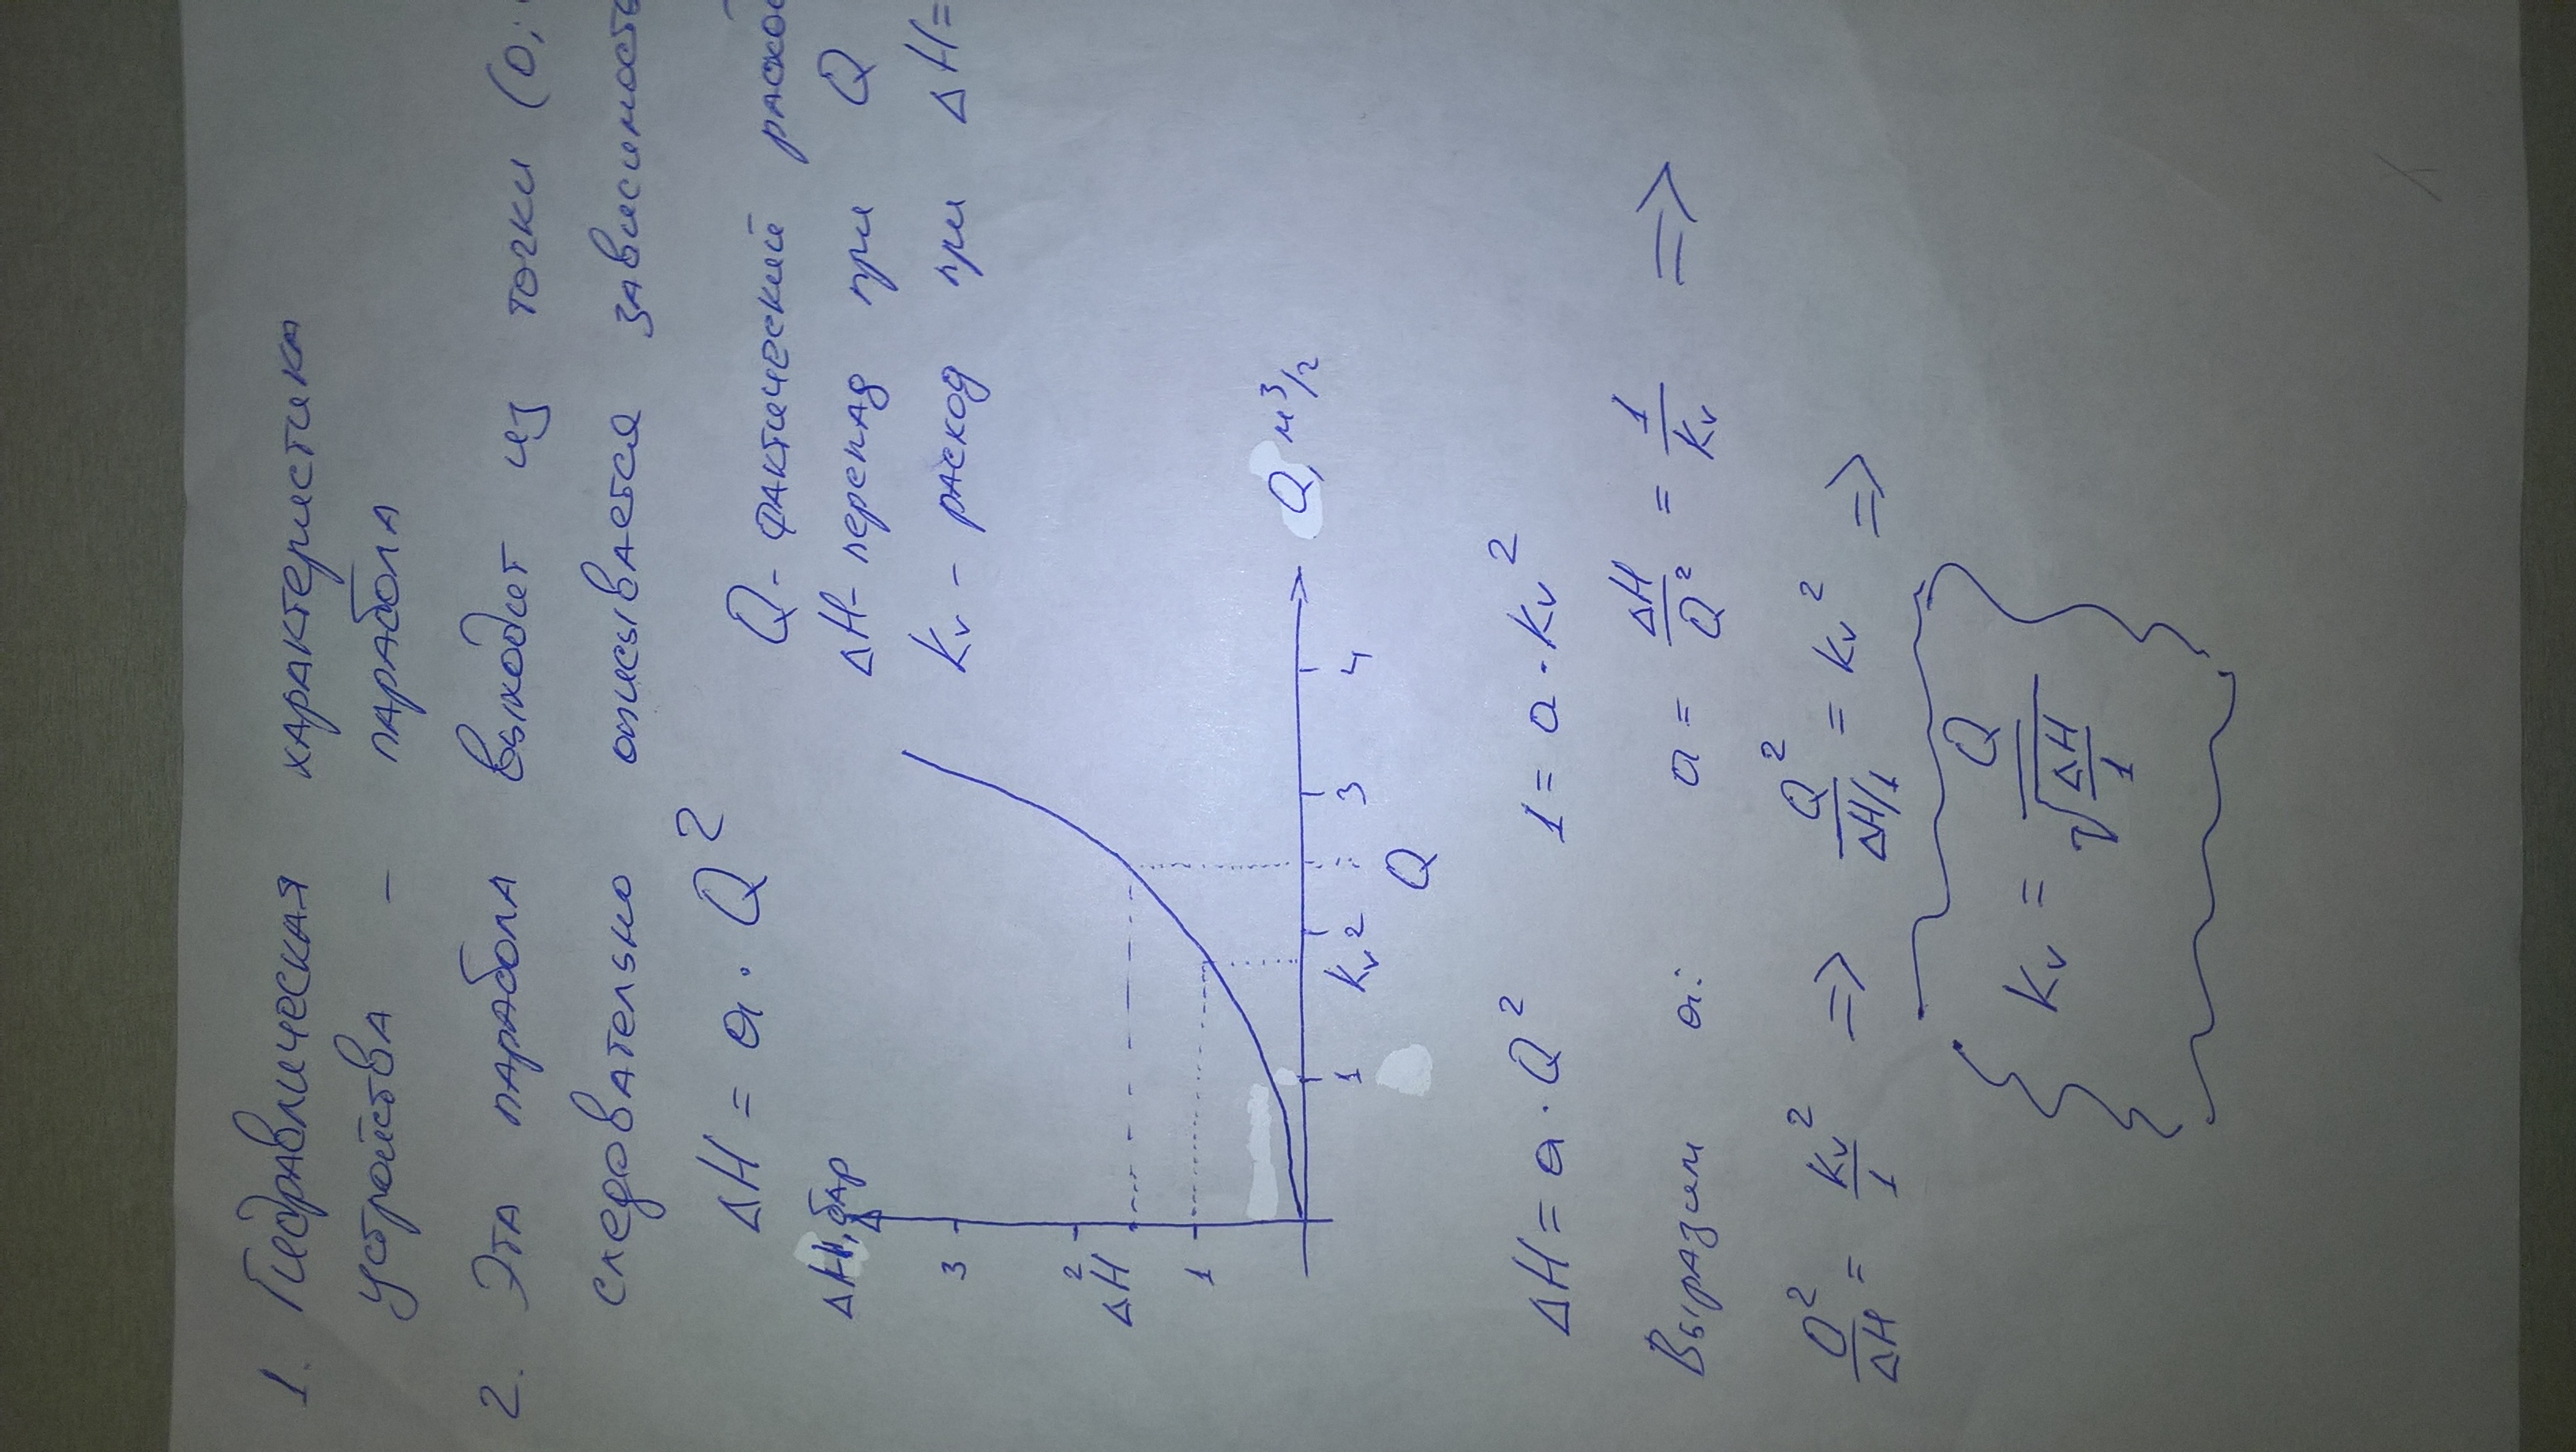 1. Гидравлическая характеристика
устройства - парабола
2. Эта парабола выходит из точки (0;
следовательно описывается зависимость
ΔH = a · Q²
Q - фактический расхо
ΔH - перепад при Q
Kv - расход при ΔH =
ΔH, бар
3
2
ΔH
1
1 2 3 4 Q, м³/г
Kv Q
ΔH = a · Q² 1 = a · Kv²
Выразим a: a = ΔH/Q² = 1/Kv =>
Q²/ΔH = Kv²/1 => Q²/ΔH/1 = Kv² =>
Kv = Q/√(ΔH/1)